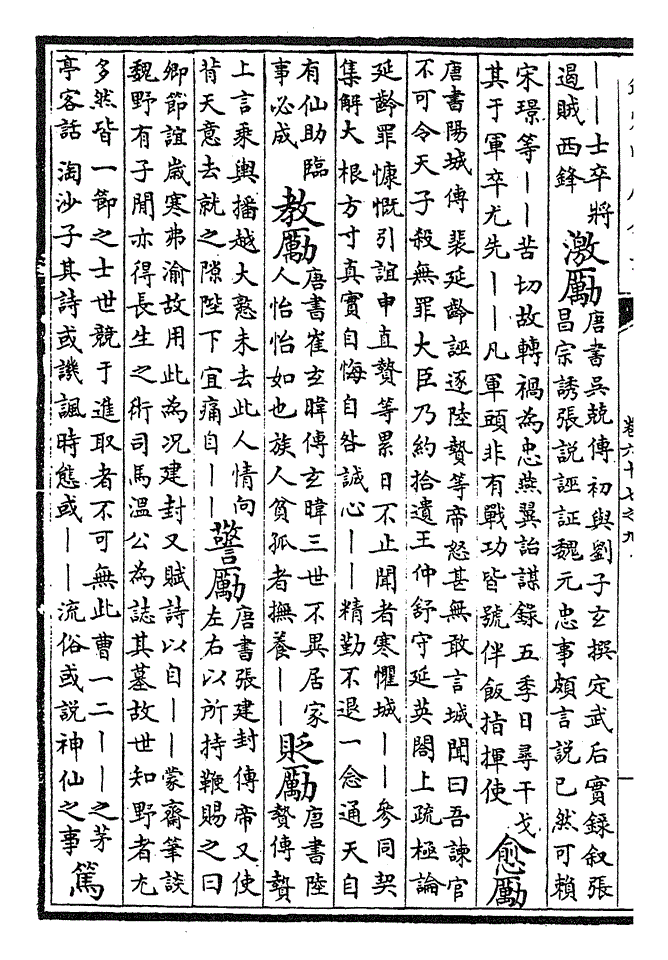 卷六十七之九
——士卒將
遏賊西鋒
激勵
唐書吳兢傳初與劉子玄撰定武后實錄叙張
昌宗誘張説誣証魏元忠事頗言説已然可賴
宋璟等——苦切故轉禍為忠燕翼詒謀録五季日尋干戈
其于軍卒尤先——凡軍頭非有戰功皆號伴飯指揮使
愈勵
唐書陽城傳裴延齡誣逐陸贄等帝怒甚無敢言城聞曰吾諫官
不可令天子殺無罪大臣乃約拾遺王仲舒守延英閣上疏極論
延齡罪慷慨引誼申直贄等累日不止聞者寒懼城——參同契
集解大根方寸真實自悔自咎誠心——精勤不退一念通天自
有仙助臨
事必成
教勵
唐書崔玄暐傳玄暐三世不異居家
人怡怡如也族人貧孤者撫養——
貶勵
唐書陸
贄傳贄
上言乘輿播越大憝未去此人情向
背天意去就之隙陛下宜痛自——
警勵
唐書張建封傳帝又使
左右以所持鞭賜之曰
卿節誼歲寒弗渝故用此為况建封又賦詩以自——蒙齋筆談
魏野有子閒亦得長生之術司馬溫公為誌其墓故世知野者尤
多然皆一節之士世競于進取者不可無此曹一二——之茅
亭客話淘沙子其詩或譏諷時態或——流俗或説神仙之事
篤